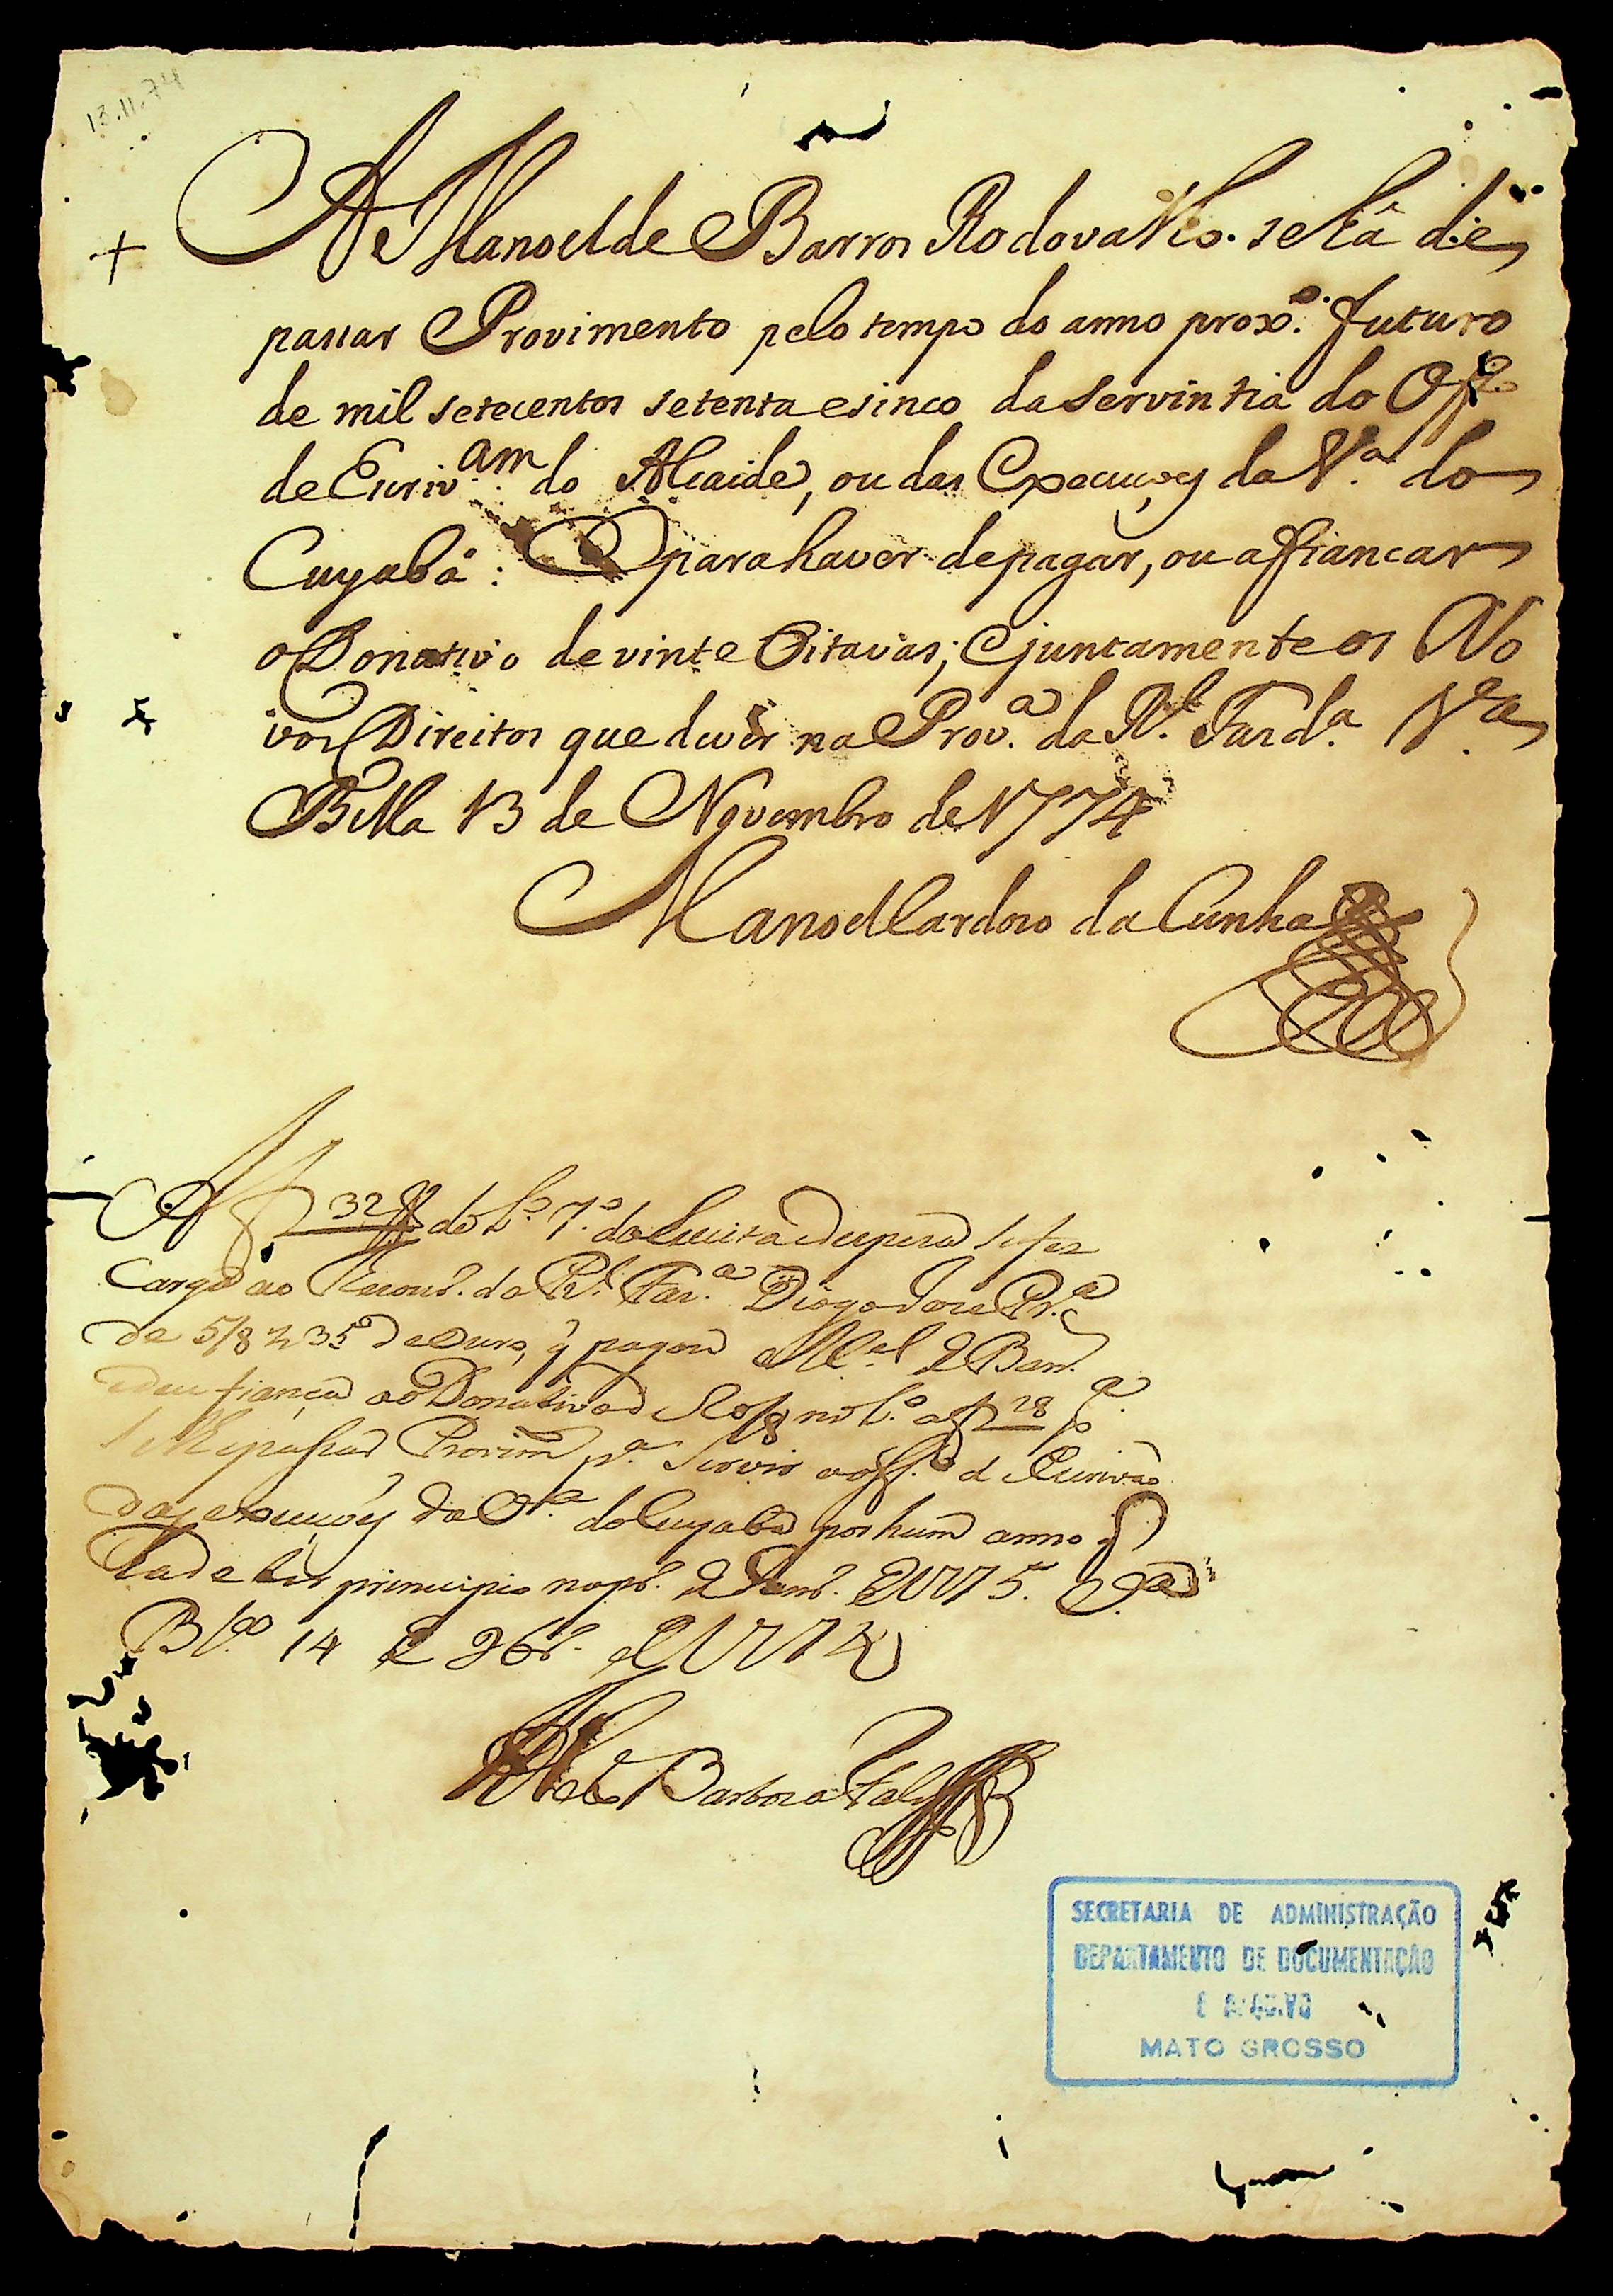 13.11.74
A Manoel de Barros Rodovalho. se hâ de
passar Provimento pelo tempo do anno proxº. futuro
de mil setecentos setenta e sinco da Serventia do Offº
de Escrivam. do Alcaide, ou das Execuçoẽs da Vª. do
Cuyabá: E para haver de pagar, ou afiancar
o Donativo de vinte Oitavas; E juntamente os No
ivos Direitos que dever na Provª. da Rl. Fazdª. Vª
Bella 13 de Novembro de 1774
Manoel Cardozo da Cunha
A f 32 do Lº. 7º. da Receita e despeza se fez
Carga ao Thezourº. da Rl. Fazª. Diogo Joze Prª
de 5/8 e 35 de Ouro, q pagou Mel. de Barr.
e deu fiança ao Donativo no Lº. a f 28
passar Provim pª. Servir o offº de Escrivão
das execuçoẽs da Vª. do Cuyabá por hum anno
principio no pº. de Janrº. de 1775. Vª
Bª 14 de 9brº. de 1774
Barboza
SECRETARIA DE ADMINISTRAÇÃO
DEPARTAMENTO DE DOCUMENTAÇÃO
E ARQUIVO
MATO GROSSO